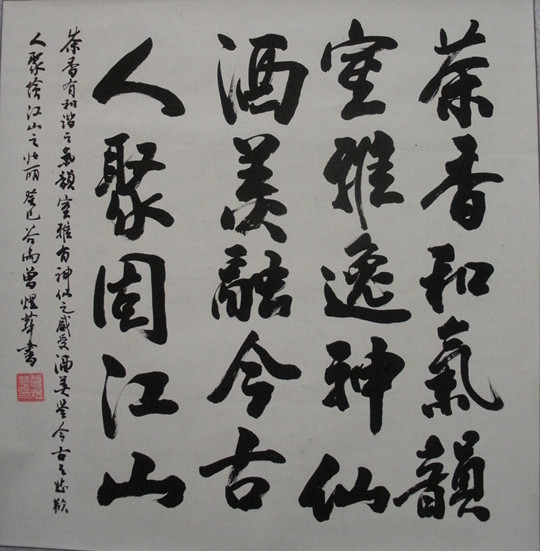 茶香和氣韻
室雅逸神仙
酒美融今古
人聚固江山
茶香有和谐之氣韻室雅有神仙之感受酒美鉴今古之悲歡
人聚撿江山之壮丽癸巳谷雨曾煜華書